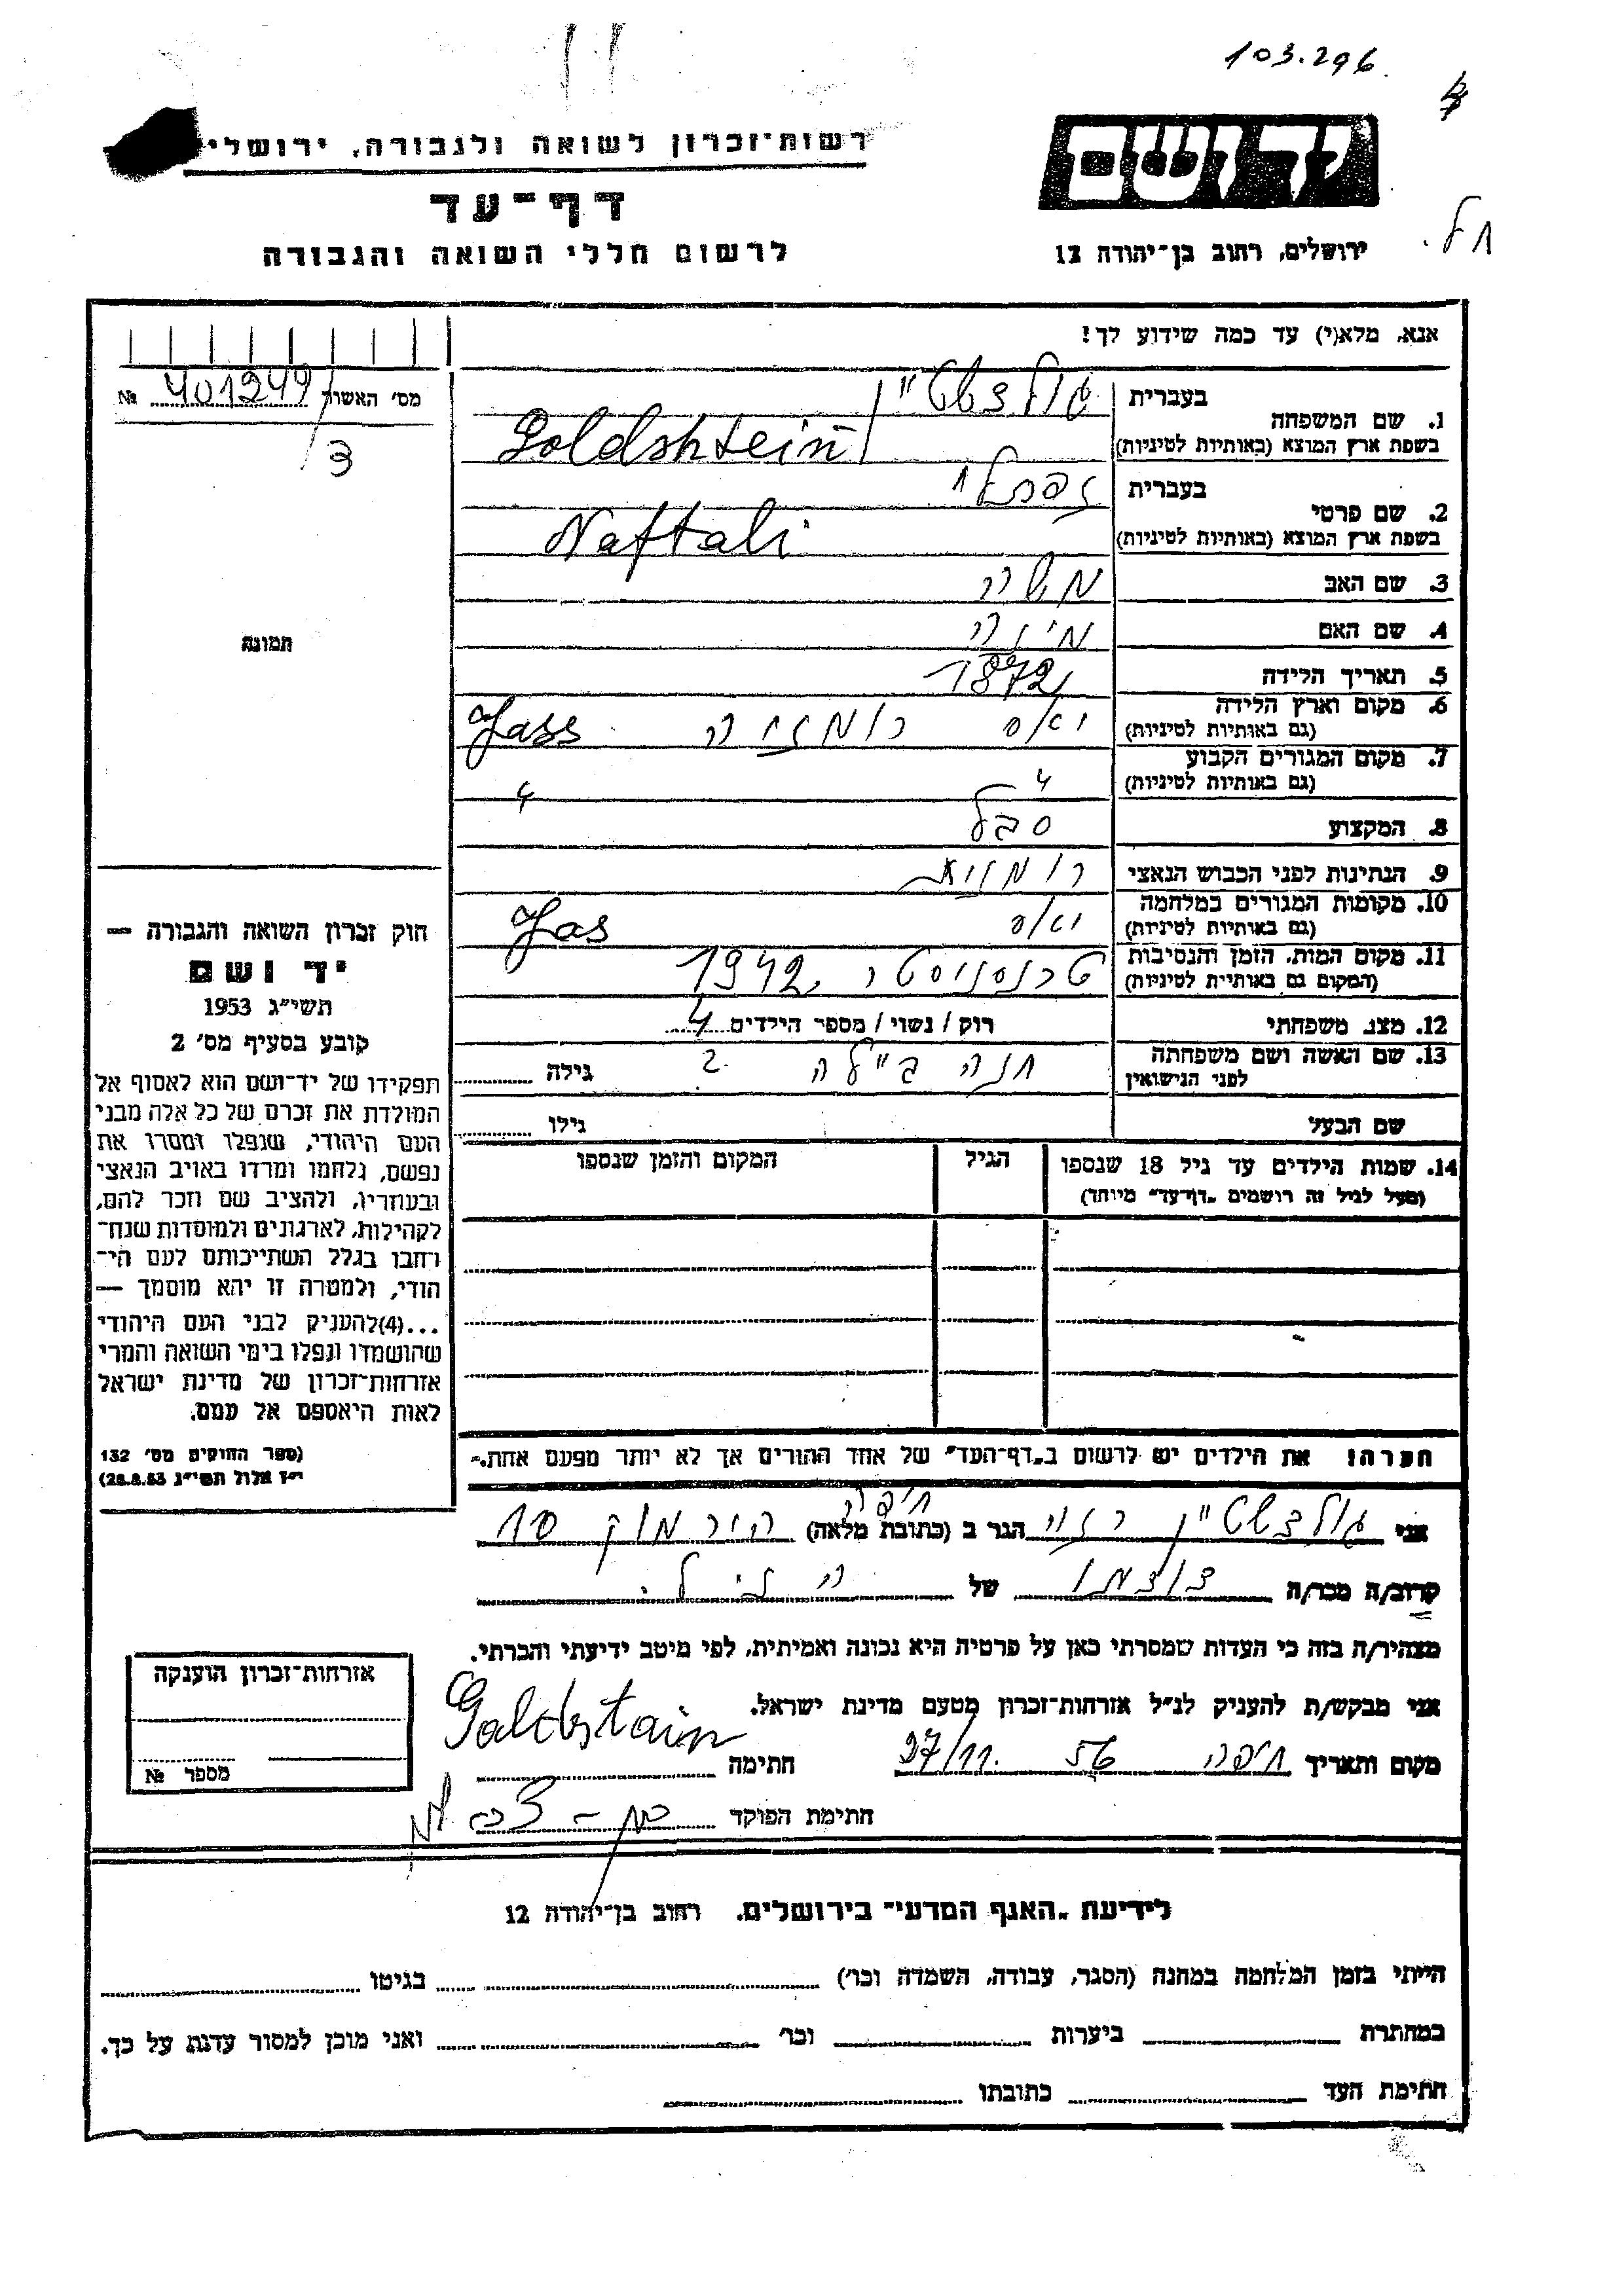 103.296
רשות־זכרון לשואה ולגבורה, ירושלי
יד ושם
דף־עד
לרשום חללי השואה והגבורה
ירושלים, רחוב בן־יהודה 12
אנא, מלא(י) עד כמה שידוע לך!
מס' האשור № 401249
3
1. שם המשפחה בעברית גולדשטיין
בשפת ארץ המוצא (באותיות לטיניות) Goldshtein
2. שם פרטי בעברית נפתלי
בשפת ארץ המוצא (באותיות לטיניות) Naftali
3. שם האב משה
4. שם האם מינה
תמונה
5. תאריך הלידה 1872
6. מקום וארץ הלידה (גם באותיות לטיניות) יאס רומניה Jass
7. מקום המגורים הקבוע (גם באותיות לטיניות) 4 4
8. המקצוע סבל
9. הנתינות לפני הכבוש הנאצי רומנית
10. מקומות המגורים במלחמה (גם באותיות לטיניות) יאס Jas
11. מקום המות, הזמן והנסיבות (המקום גם באותיות לטיניות) טרנסניסטר 1942
12. מצב משפחתי רוק / נשוי / מספר הילדים 4
13. שם האשה ושם משפחתה לפני הנישואין חנה ביילה ? גילה
שם הבעל גילו
14. שמות הילדים עד גיל 18 שנספו (מעל לגיל זה רושמים "דף־עד" מיוחד) הגיל המקום והזמן שנספו
חוק זכרון השואה והגבורה —
יד ושם
תשי"ג 1953
קובע בסעיף מס' 2
תפקידו של יד־ושם הוא לאסוף אל
המולדת את זכרם של כל אלה מבני
העם היהודי, שנפלו ומסרו את
נפשם, נלחמו ומרדו באויב הנאצי
ובעוזריו, ולהציב שם וזכר להם,
לקהילות, לארגונים ולמוסדות שנח־
רחבו בגלל השתייכותם לעם הי־
הודי, ולמטרה זו יהא מוסמך —
...(4)להעניק לבני העם היהודי
שהושמדו ונפלו בימי השואה והמרי
אזרחות־זכרון של מדינת ישראל
לאות היאספם אל עמם.
(ספר החוקים מס' 132
י"ז אלול תשי"ג 28.8.53)
הערה! את הילדים יש לרשום ב"דף־העד" של אחד ההורים אך לא יותר מפעם אחת.-
אני גולדשטיין הגר ב (כתובת מלאה) חיפה 10
קרוב/ה מכר/ה של
מצהיר/ה בזה כי העדות שמסרתי כאן על פרטיה היא נכונה ואמיתית, לפי מיטב ידיעתי והכרתי.
אני מבקש/ת להעניק לנ"ל אזרחות־זכרון מטעם מדינת ישראל.
מקום ותאריך חיפה 56 27/11. חתימה Goldstain
חתימת הפוקד
אזרחות־זכרון הוענקה
מספר №
לידיעת "האגף המדעי" בירושלים, רחוב בן־יהודה 12
הייתי בזמן המלחמה במחנה (הסגר, עבודה, השמדה וכו') בגיטו
במחתרת ביערות וכו' ואני מוכן למסור עדות על כך.
חתימת העד כתובתו